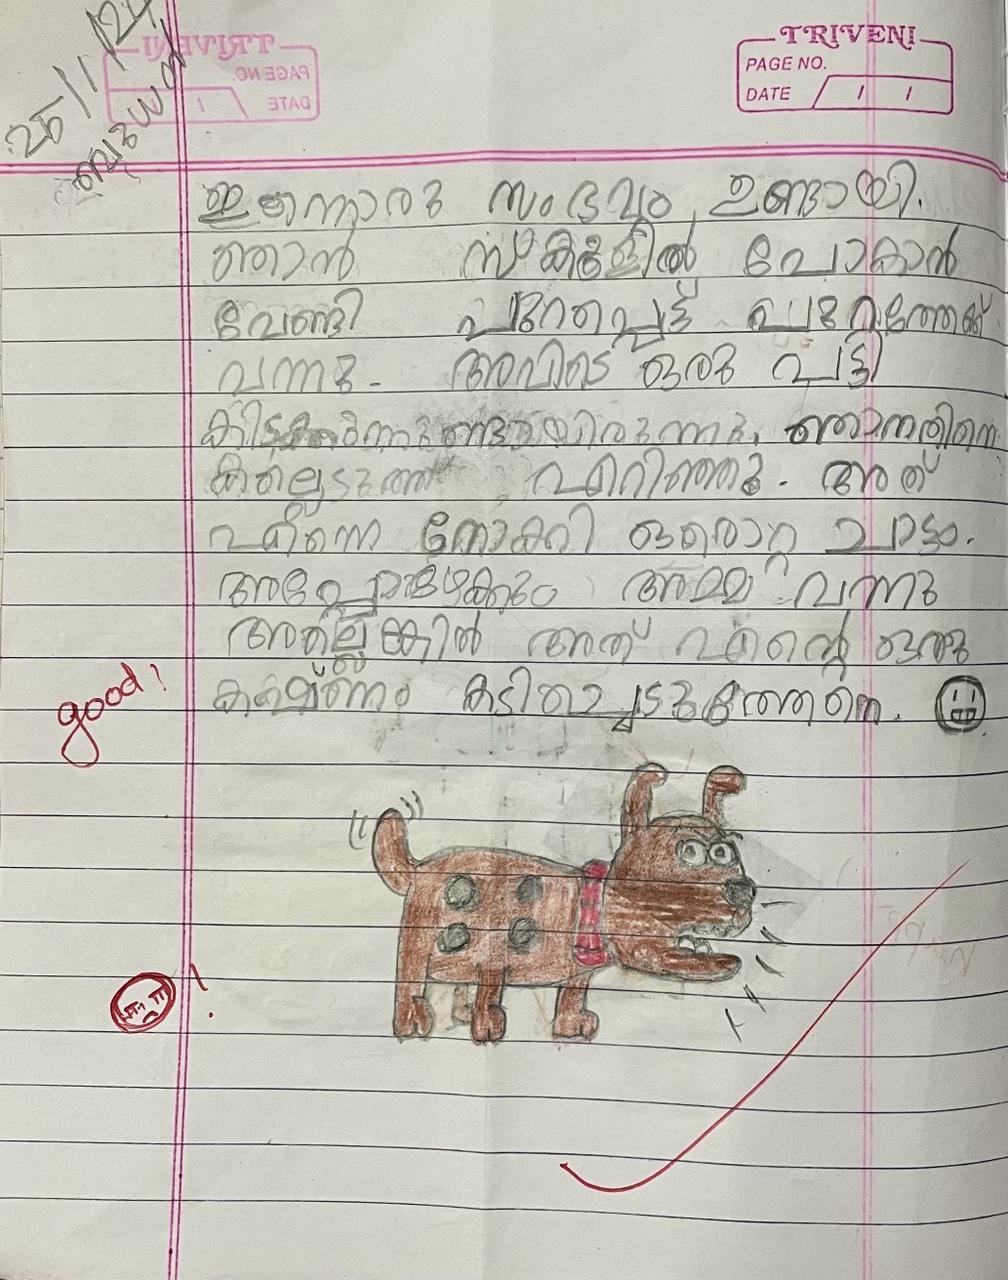 TRIVENI
PAGE NO.
DATE / /
25/11/24
ബുധൻ
ഇന്നൊരു സംഭവം ഉണ്ടായി.
ഞാൻ സ്കൂളിൽ പോകാൻ
വേണ്ടി പുറപ്പെട്ട് പുറത്തേക്ക്
വന്നു. അവിടെ ഒരു പട്ടി
കിടക്കുന്നുണ്ടായിരുന്നു. ഞാനതിനെ
കല്ലെടുത്ത് എറിഞ്ഞു. അത്
എന്നെ നോക്കി ഒരൊറ്റ ചാട്ടം.
അപ്പോഴേക്കും അമ്മ വന്നു
അല്ലെങ്കിൽ അത് എന്റെ ഒരു
കഷ്ണം കടിച്ചെടുത്തേനെ.
good!